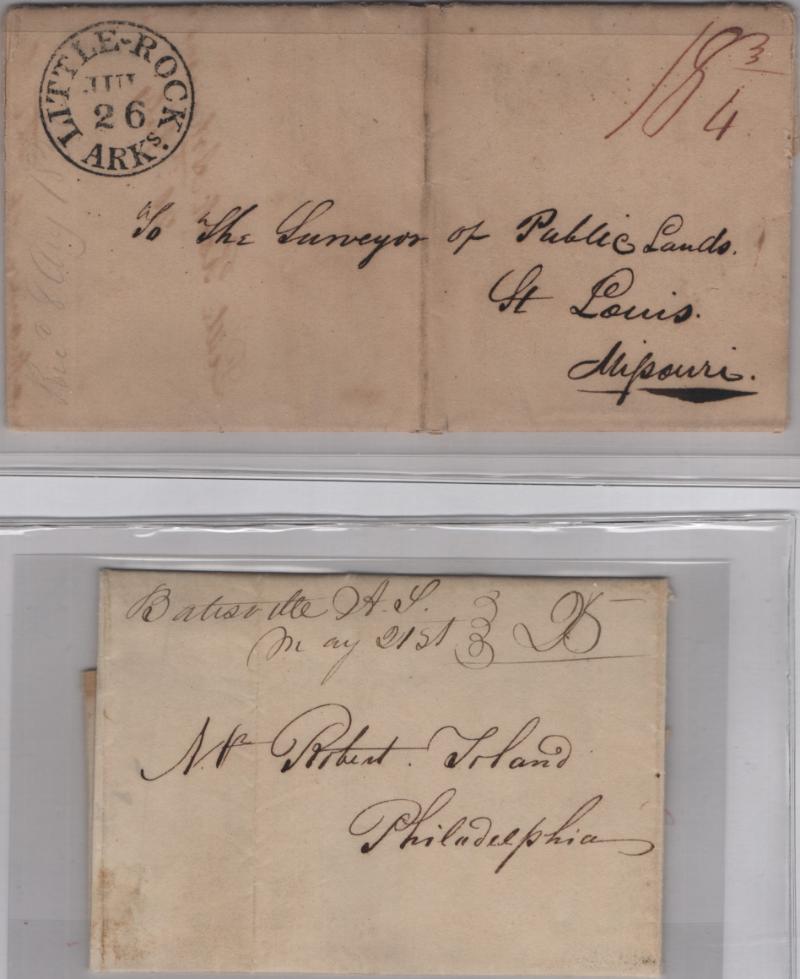 LITTLE-ROCK
JUL
26
ARKs.
18 3/4
To The Surveyor of Public Lands.
St Louis.
Missouri.
Batesville A. S.
May 21st
25
Mr Robert Toland
Philadelphia